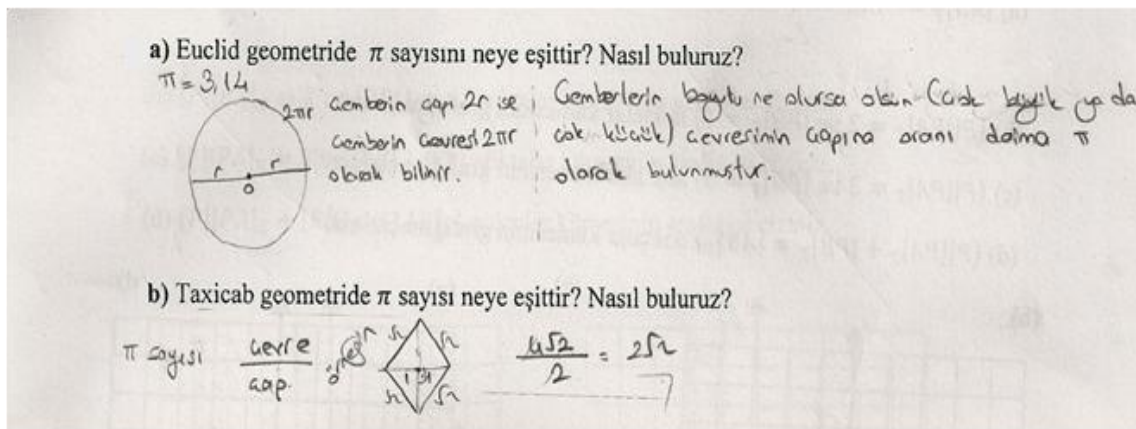 a) Euclid geometride π sayısını neye eşittir? Nasıl buluruz?
π = 3,14
2πr
r r
O
Çemberin çapı 2r ise
çemberin çevresi 2πr
olarak bilinir.
Çemberlerin boyutu ne olursa olsun (çok büyük ya da
çok küçük) çevresinin çapına oranı daima π
olarak bulunmuştur.
b) Taxicab geometride π sayısı neye eşittir? Nasıl buluruz?
π sayısı çevre/çap
√2 √2
1
√2 √2
4√2/2 = 2√2